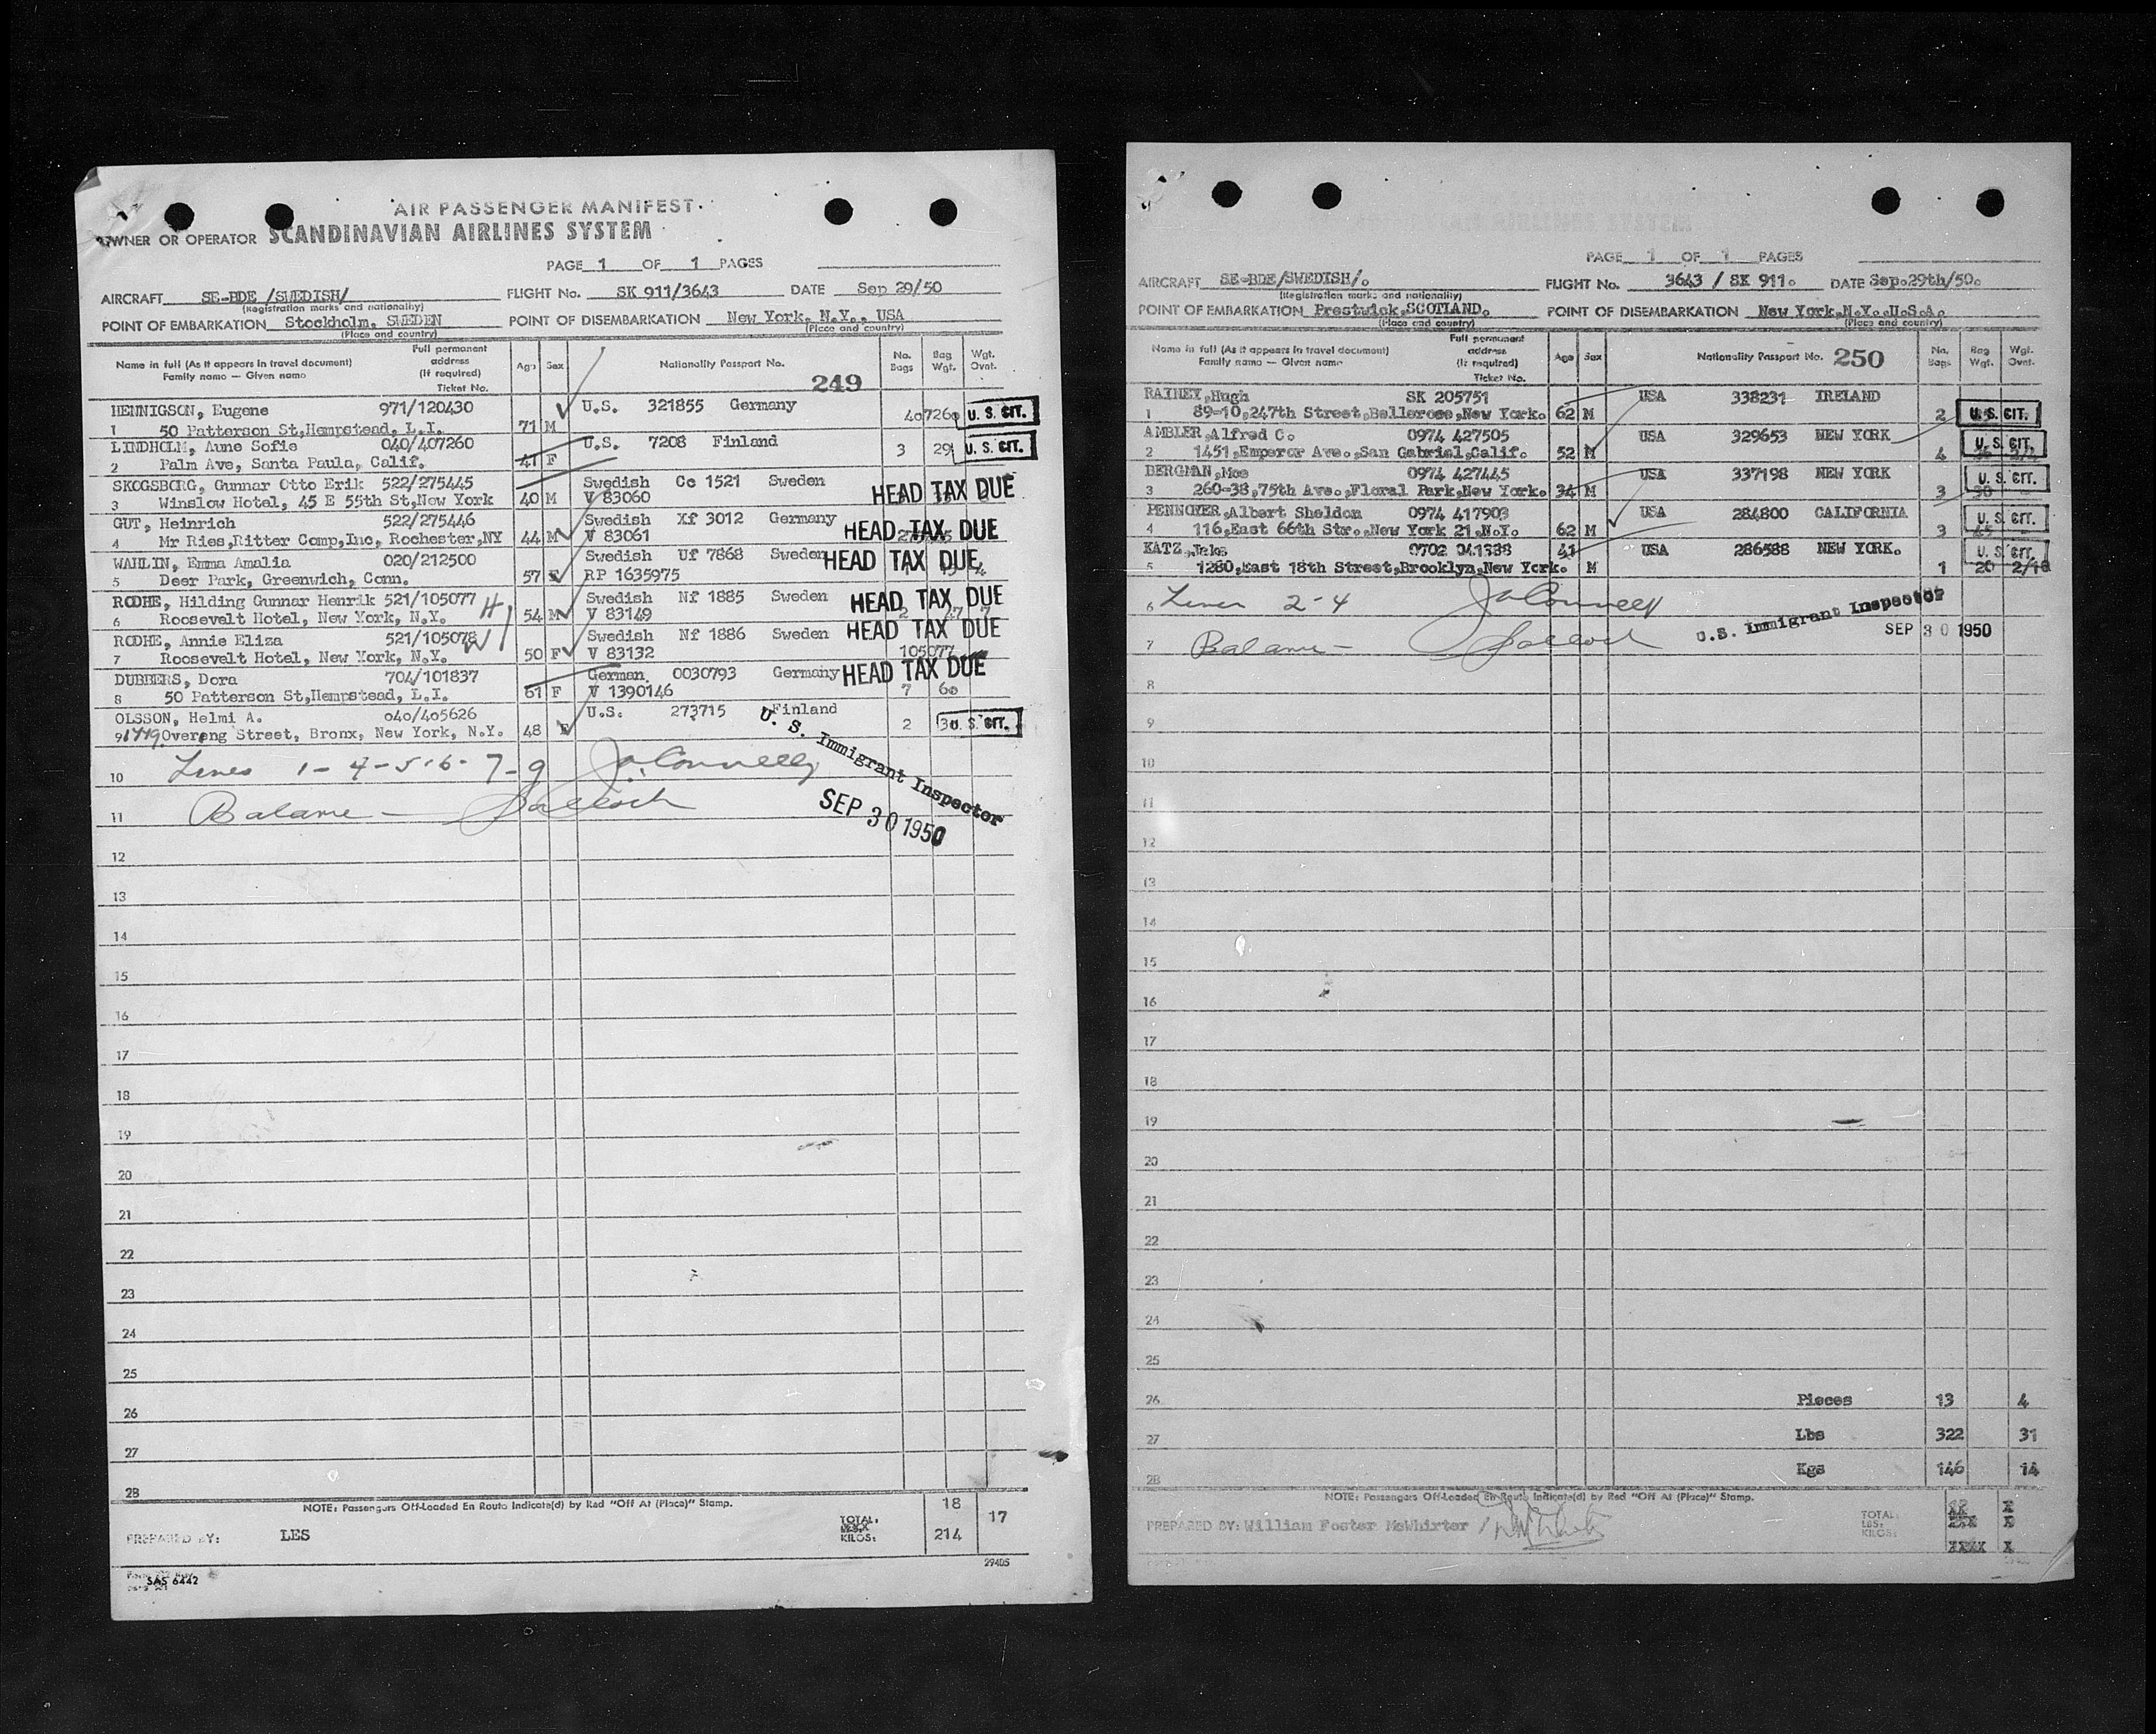 AIR PASSENGER MANIFEST
OWNER OR OPERATOR SCANDINAVIAN AIRLINES SYSTEM
PAGE 1 OF 1 PAGES
AIRCRAFT SE-BDE /SWEDISH/ FLIGHT No. SK 911/3643 DATE Sep 29/50
(Registration marks and nationality)
POINT OF EMBARKATION Stockholm, SWEDEN POINT OF DISEMBARKATION New York, N.Y., USA
(Place and country) (Place and country)
Name in full (As it appears in travel document) Family name — Given name Full permanent address (If required) Ticket No. Age Sex Nationality Passport No. 249 No. Bags Bag Wgt. Wgt. Ovnt.
HENNIGSON, Eugene 971/120430 U.S. 321855 Germany
1 50 Patterson St,Hempstead, L.I. 71 M U. S. CIT.
LINDHOLM, Aune Sofie 040/407260 U.S. 7208 Finland
2 Palm Ave, Santa Paula, Calif. 41 F 3 29 U. S. CIT.
SKOGSBORG, Gunnar Otto Erik 522/275445 Swedish Cc 1521 Sweden
3 Winslow Hotel, 45 E 55th St,New York 40 M V 83060 HEAD TAX DUE
GUT, Heinrich 522/275446 Swedish Xf 3012 Germany
4 Mr Ries,Ritter Comp,Inc, Rochester,NY 44 M V 83061 HEAD TAX DUE
WAHLIN, Emma Amalia 020/212500 Swedish Uf 7868 Sweden HEAD TAX DUE
5 Deer Park, Greenwich, Conn. 57 F RP 1635975
RODHE, Hilding Gunnar Henrik 521/105077 H Swedish Nf 1885 Sweden HEAD TAX DUE
6 Roosevelt Hotel, New York, N.Y. 54 M V 83149 2 47 7
RODHE, Annie Eliza 521/105078 W Swedish Nf 1886 Sweden HEAD TAX DUE
7 Roosevelt Hotel, New York, N.Y. 50 F V 83132 105077
DUBBERS, Dora 704/101837 German 0030793 Germany HEAD TAX DUE
8 50 Patterson St,Hempstead, L.I. 61 F V 1390146 7 60
OLSSON, Helmi A. 040/405626 U.S. 273715 Finland
9 1419 Overeng Street, Bronx, New York, N.Y. 48 F 2 U. S. CIT.
10 Lines 1-4-5-6-7-9 Jo Connelly
U. S. Immigrant Inspector
11 Balance —
SEP 30 1950
12
13
14
15
16
17
18
19
20
21
22
23
24
25
26
27
28
NOTE: Passengers Off-Loaded En Route Indicate(d) by Red "Off At (Place)" Stamp. 18 17
PREPARED BY: LES TOTAL: KILOS: 214
29405
SAS 6442
PAGE 1 OF 1 PAGES
AIRCRAFT SE-BDE/SWEDISH/. FLIGHT No. 3643 / SK 911. DATE Sep.29th/50.
(Registration marks and nationality)
POINT OF EMBARKATION Prestwick,SCOTLAND. POINT OF DISEMBARKATION New York,N.Y.,U.S.A.
(Place and country) (Place and country)
Name in full (As it appears in travel document) Family name — Given name Full permanent address (If required) Ticket No. Age Sex Nationality Passport No. 250 No. Bags Bag Wgt. Wgt. Ovnt.
RAINEY,Hugh SK 205751 USA 338231 IRELAND
1 89-10,247th Street,Bellerose,New York. 62 M 2 U. S. CIT.
AMBLER,Alfred C. 0974 427505 USA 329653 NEW YORK
2 1451,Emperor Ave.,San Gabriel,Calif. 52 M 4 U. S. CIT.
BERGMAN,Moe 0974 427445 USA 337198 NEW YORK
3 260-38,75th Ave.,Floral Park,New York. 34 M 3 U. S. CIT.
PENNOYER,Albert Sheldon 0974 417903 USA 284800 CALIFORNIA
4 116,East 66th Str.,New York 21,N.Y. 62 M 3 U. S. CIT.
KATZ,Jake 0702 041388 41 USA 286588 NEW YORK.
5 1280,East 18th Street,Brooklyn,New York. M 1 20 2/18 U. S. CIT.
6 Lines 2-4 Jo Connelly
U.S. Immigrant Inspector
7 Balance — SEP 30 1950
8
9
10
11
12
13
14
15
16
17
18
19
20
21
22
23
24
25
26 Pieces 13 4
27 Lbs 322 31
28 Kgs 146 14
NOTE: Passengers Off-Loaded En Route Indicate(d) by Red "Off At (Place)" Stamp.
PREPARED BY: William Foster McWhirter TOTAL: LBS: KILOS: